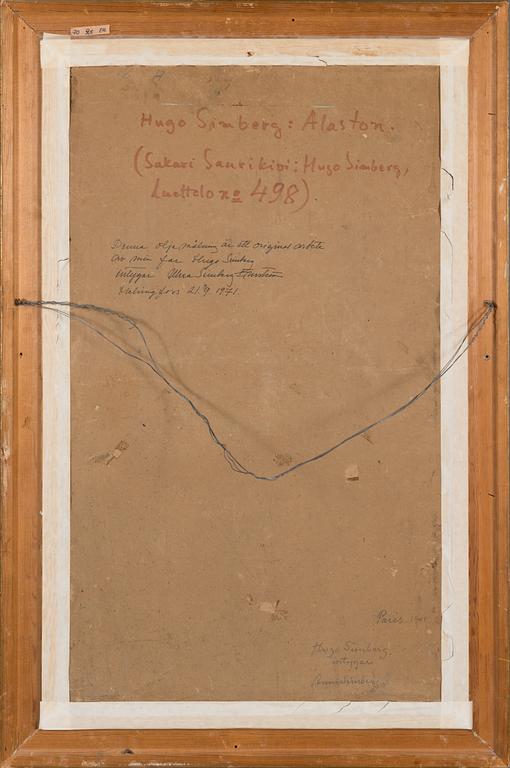 Hugo Simberg: Alaston.
(Sakari Saarikivi: Hugo Simberg,
Luettelo no 498).
Denna oljemålning är ett original arbete
av min far Hugo Simberg
intygar Uhra Simberg-Ehrström
Helsingfors 21.9. 1971.
Paris
Hugo Simberg
intygar
Anni Simberg